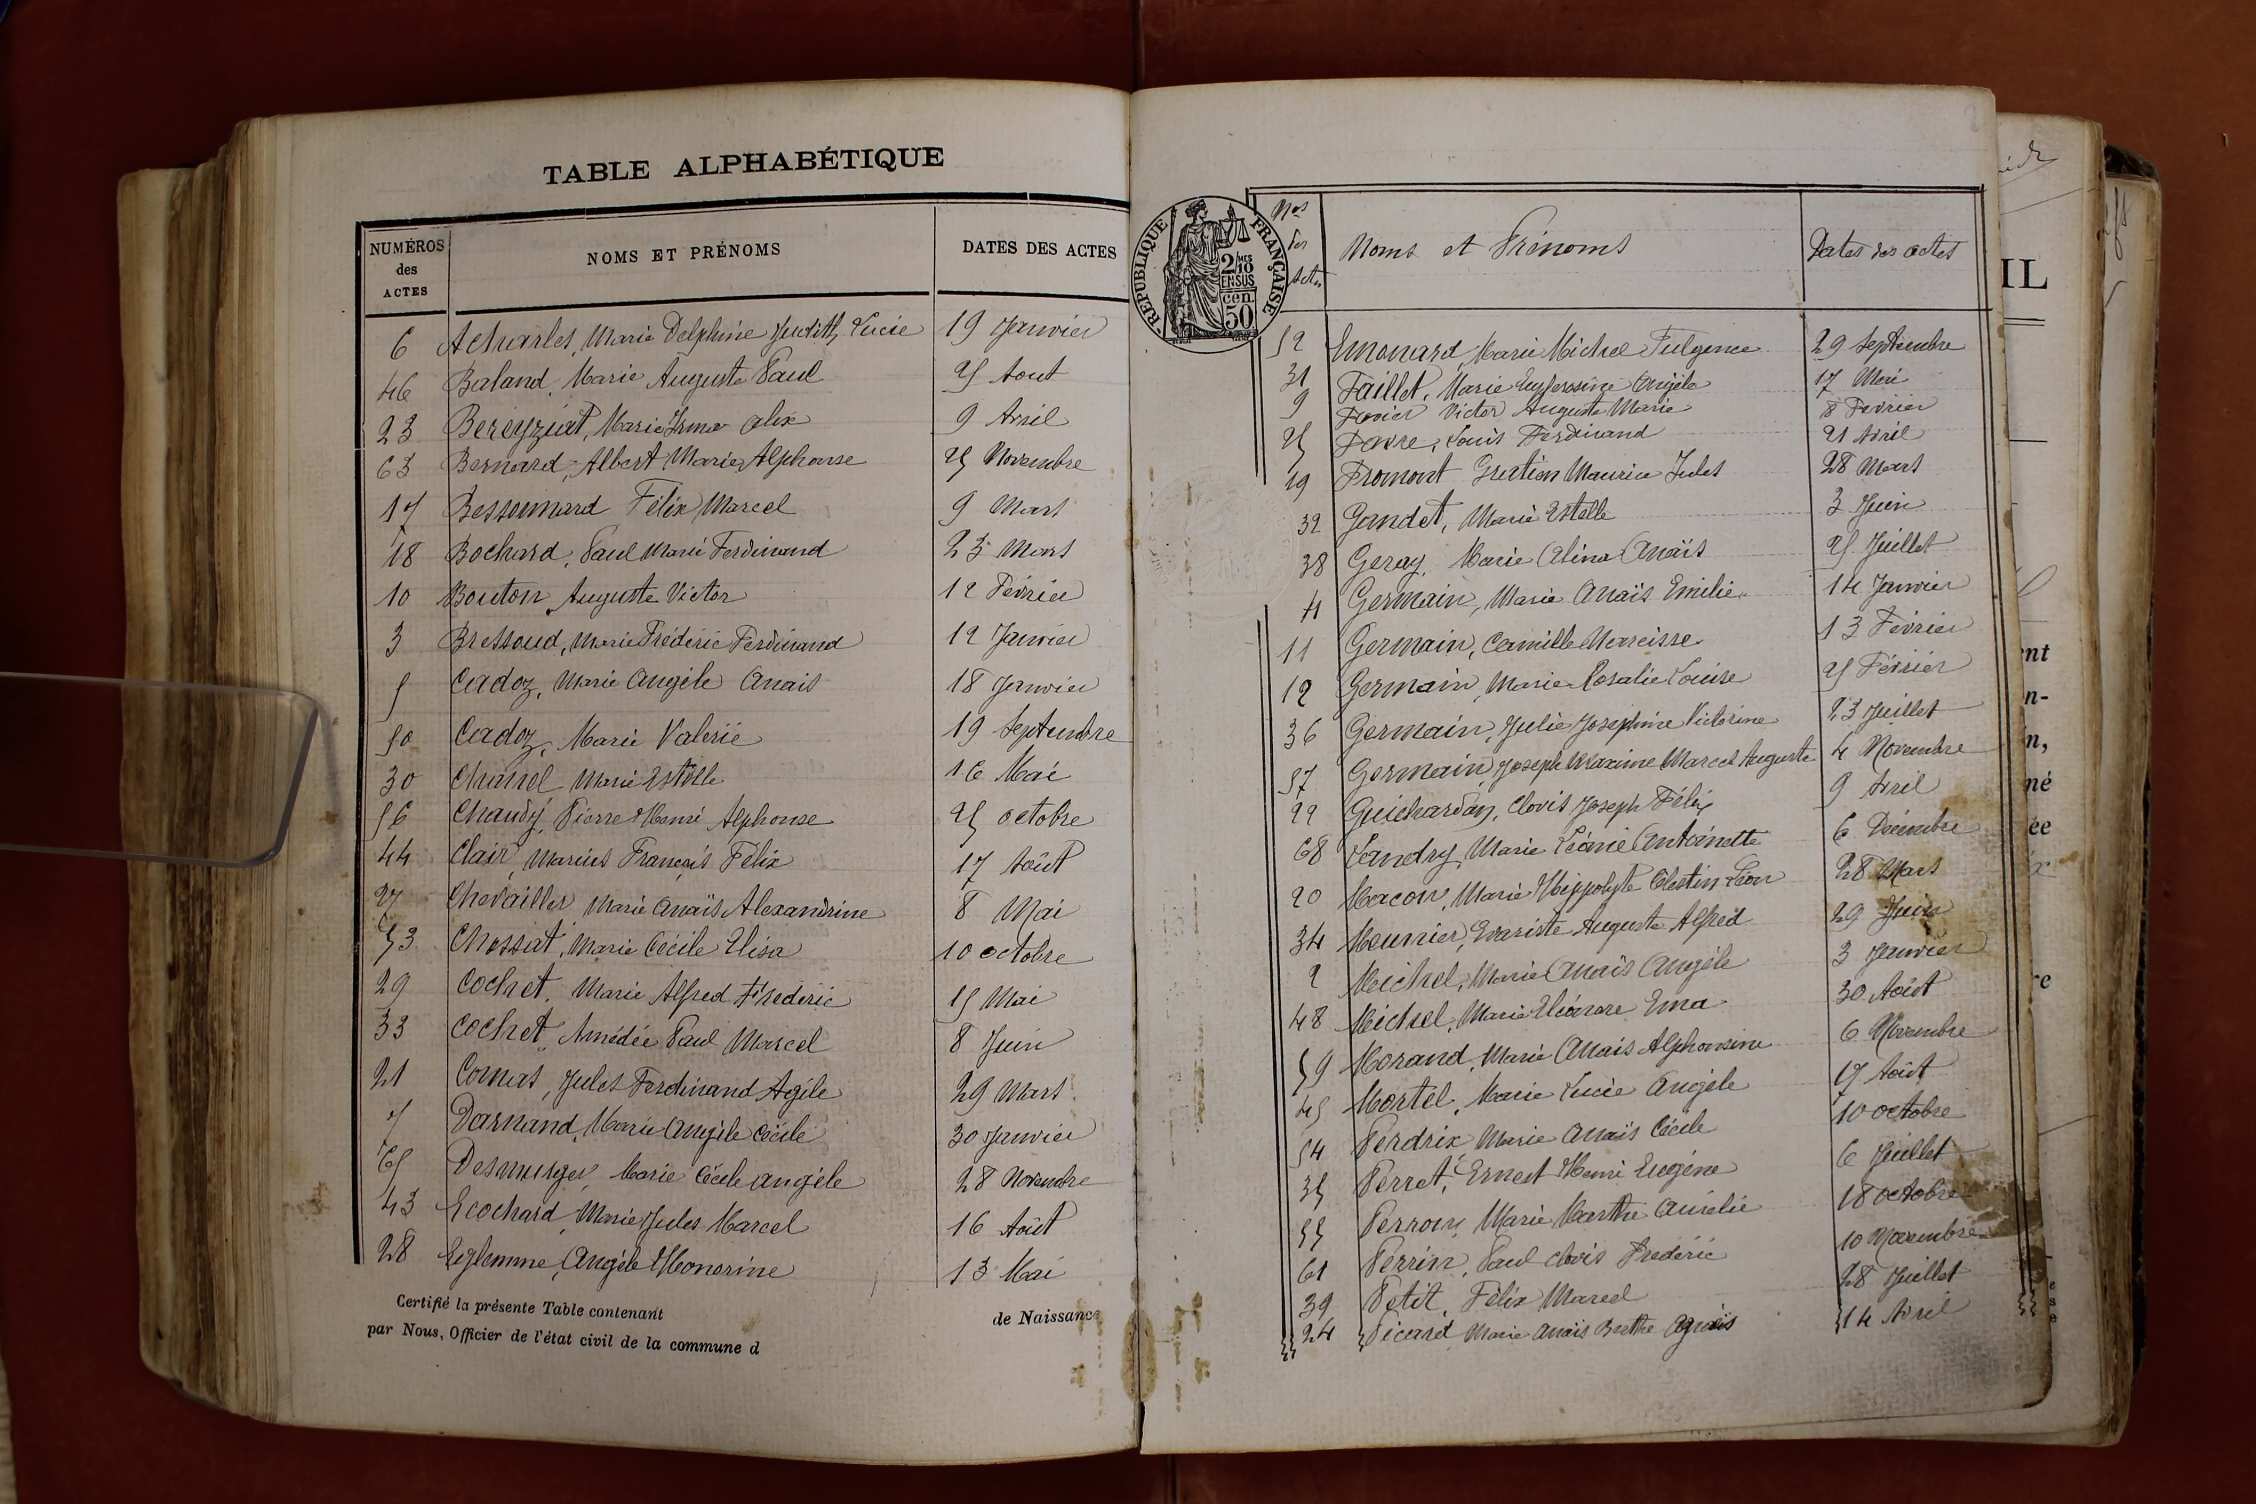 TABLE ALPHABÉTIQUE
NUMÉROS des ACTES NOMS ET PRÉNOMS DATES DES ACTES
6 Acharles, Marie Delphine Judith Lucie 19 Janvier
46 Baland, Marie Auguste Paul 25 Aout
23 Béreyziat, Marie Irma Alix 9 Avril
63 Bernard, Albert Marie Alphonse 25 Novembre
17 Bessonnard Félix Marcel 9 Mars
18 Bochard, Paul Marie Ferdinand 23 Mars
10 Bouton, Auguste Victor 12 Février
3 Bressoud, Marie Frédéric Ferdinand 12 Janvier
5 Cadoz, Marie Angèle Anais 18 Janvier
50 Cadoz, Marie Valérie 19 Septembre
30 Chanel Marie Estelle 16 Mai
56 Chaudy, Pierre Henri Alphonse 25 octobre
44 Clair, Marius François Félix 17 Août
27 Chevailler Marie Anaïs Alexandrine 8 Mai
53 Chossat, Marie Cécile Elisa 10 octobre
29 Cochet, Marie Alfred Frédéric 15 Mai
33 Cochet, Amédée Paul Marcel 8 Juin
21 Comas, Jules Ferdinand Agile 29 Mars
7 Darnand, Marie Angèle Cécile 30 Janvier
65 Desmurger, Marie Cécile Angèle 28 Novembre
43 Ecochard, Marie Jules Marcel 16 Août
28 Eglemme, Angèle Honorine 13 Mai
Certifié la présente Table contenant de Naissance
par Nous, Officier de l'état civil de la commune d
RÉPUBLIQUE FRANÇAISE
2/10
EN SUS
cen.
50
Nos des Actes Noms et Prénoms Dates des actes
52 Emonard, Marie Michel Fulgence 29 Septembre
31 Faillet, Marie Eufrosine Angèle 17 Mai
9 Favier Victor Auguste Marie 8 Fevrier
25 Favre, Louis Ferdinand 21 Avril
19 Fromont Gratien Maurice Jules 28 Mars
32 Gandet, Marie Estelle 3 Juin
38 Geray, Marie Alina Anaïs 25 Juillet
4 Germain, Marie Anaïs Emilie 14 Janvier
11 Germain, Camille Narcisse 13 Février
12 Germain, Marie Rosalie Louise 25 Février
36 Germain, Julie Joséphine Victorine 23 Juillet
57 Germain, Joseph Maxime Marcel Auguste 4 Novembre
22 Guichardan, Clovis Joseph Félix 9 Avril
68 Landry, Marie Léonie Antoinette 6 Décembre
20 Macon, Marie Hippolyte Célestin Léon 28 Mars
34 Meunier, Evariste Auguste Alfred 29 Juin
2 Michel, Marie Anaïs Angèle 3 Janvier
48 Michel, Marie Eléonore Ema 30 Août
59 Morand, Marie Anaïs Alphonsine 6 Novembre
45 Mortel, Marie Lucie Angèle 17 Août
54 Perdrix Marie Anaïs Cécile 10 octobre
35 Perret, Ernest Henri Eugène 6 Juillet
55 Perron, Marie Marthe Aurélie 18 octobre
61 Perrin, Paul clovis Frédéric 10 Novembre
39 Petit, Félix Marcel 28 Juillet
24 Picard Marie Anaïs Berthe 14 Avril
IL